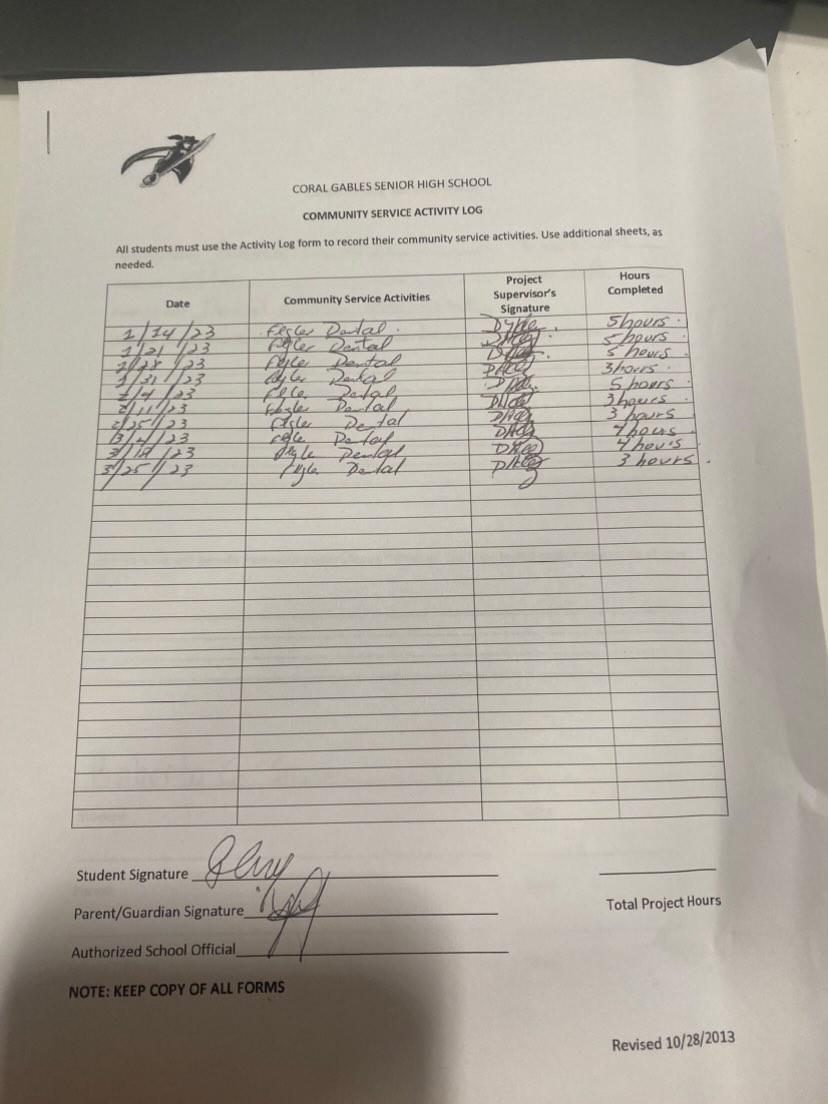 CORAL GABLES SENIOR HIGH SCHOOL
COMMUNITY SERVICE ACTIVITY LOG
All students must use the Activity Log form to record their community service activities. Use additional sheets, as
needed.
Date Community Service Activities Project Supervisor's Signature Hours Completed
1/14/23 Dental 5 hours
1/21/23 Dental 5 hours
1/28/23 Dental 5 hours
1/31/23 Dental 3 hours
2/4/23 Dental 5 hours
2/11/23 Dental 3 hours
2/25/23 Dental 3 hours
3/4/23 Dental hours
/23 Dental 4 hours
3/25/23 Dental 3 hours
Student Signature
Parent/Guardian Signature
Total Project Hours
Authorized School Official
NOTE: KEEP COPY OF ALL FORMS
Revised 10/28/2013